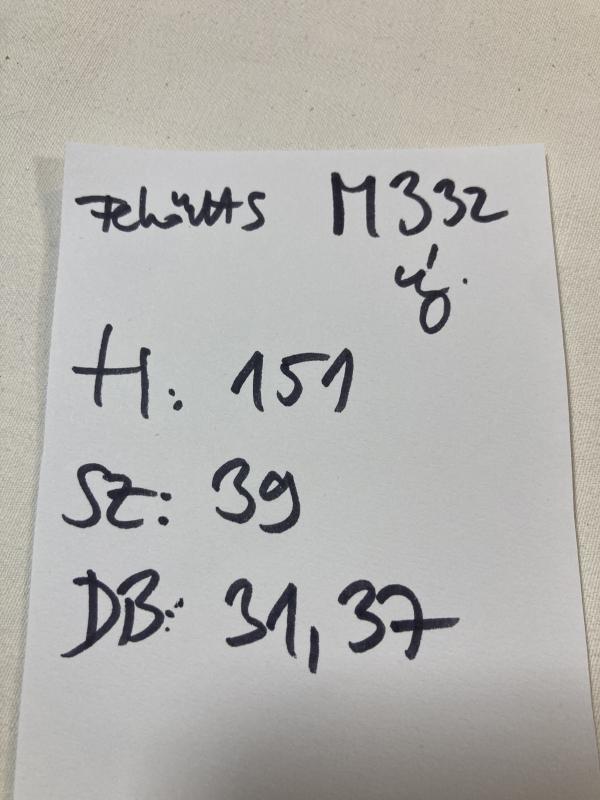 M332
új.
H: 151
SZ: 39
DB: 31,37